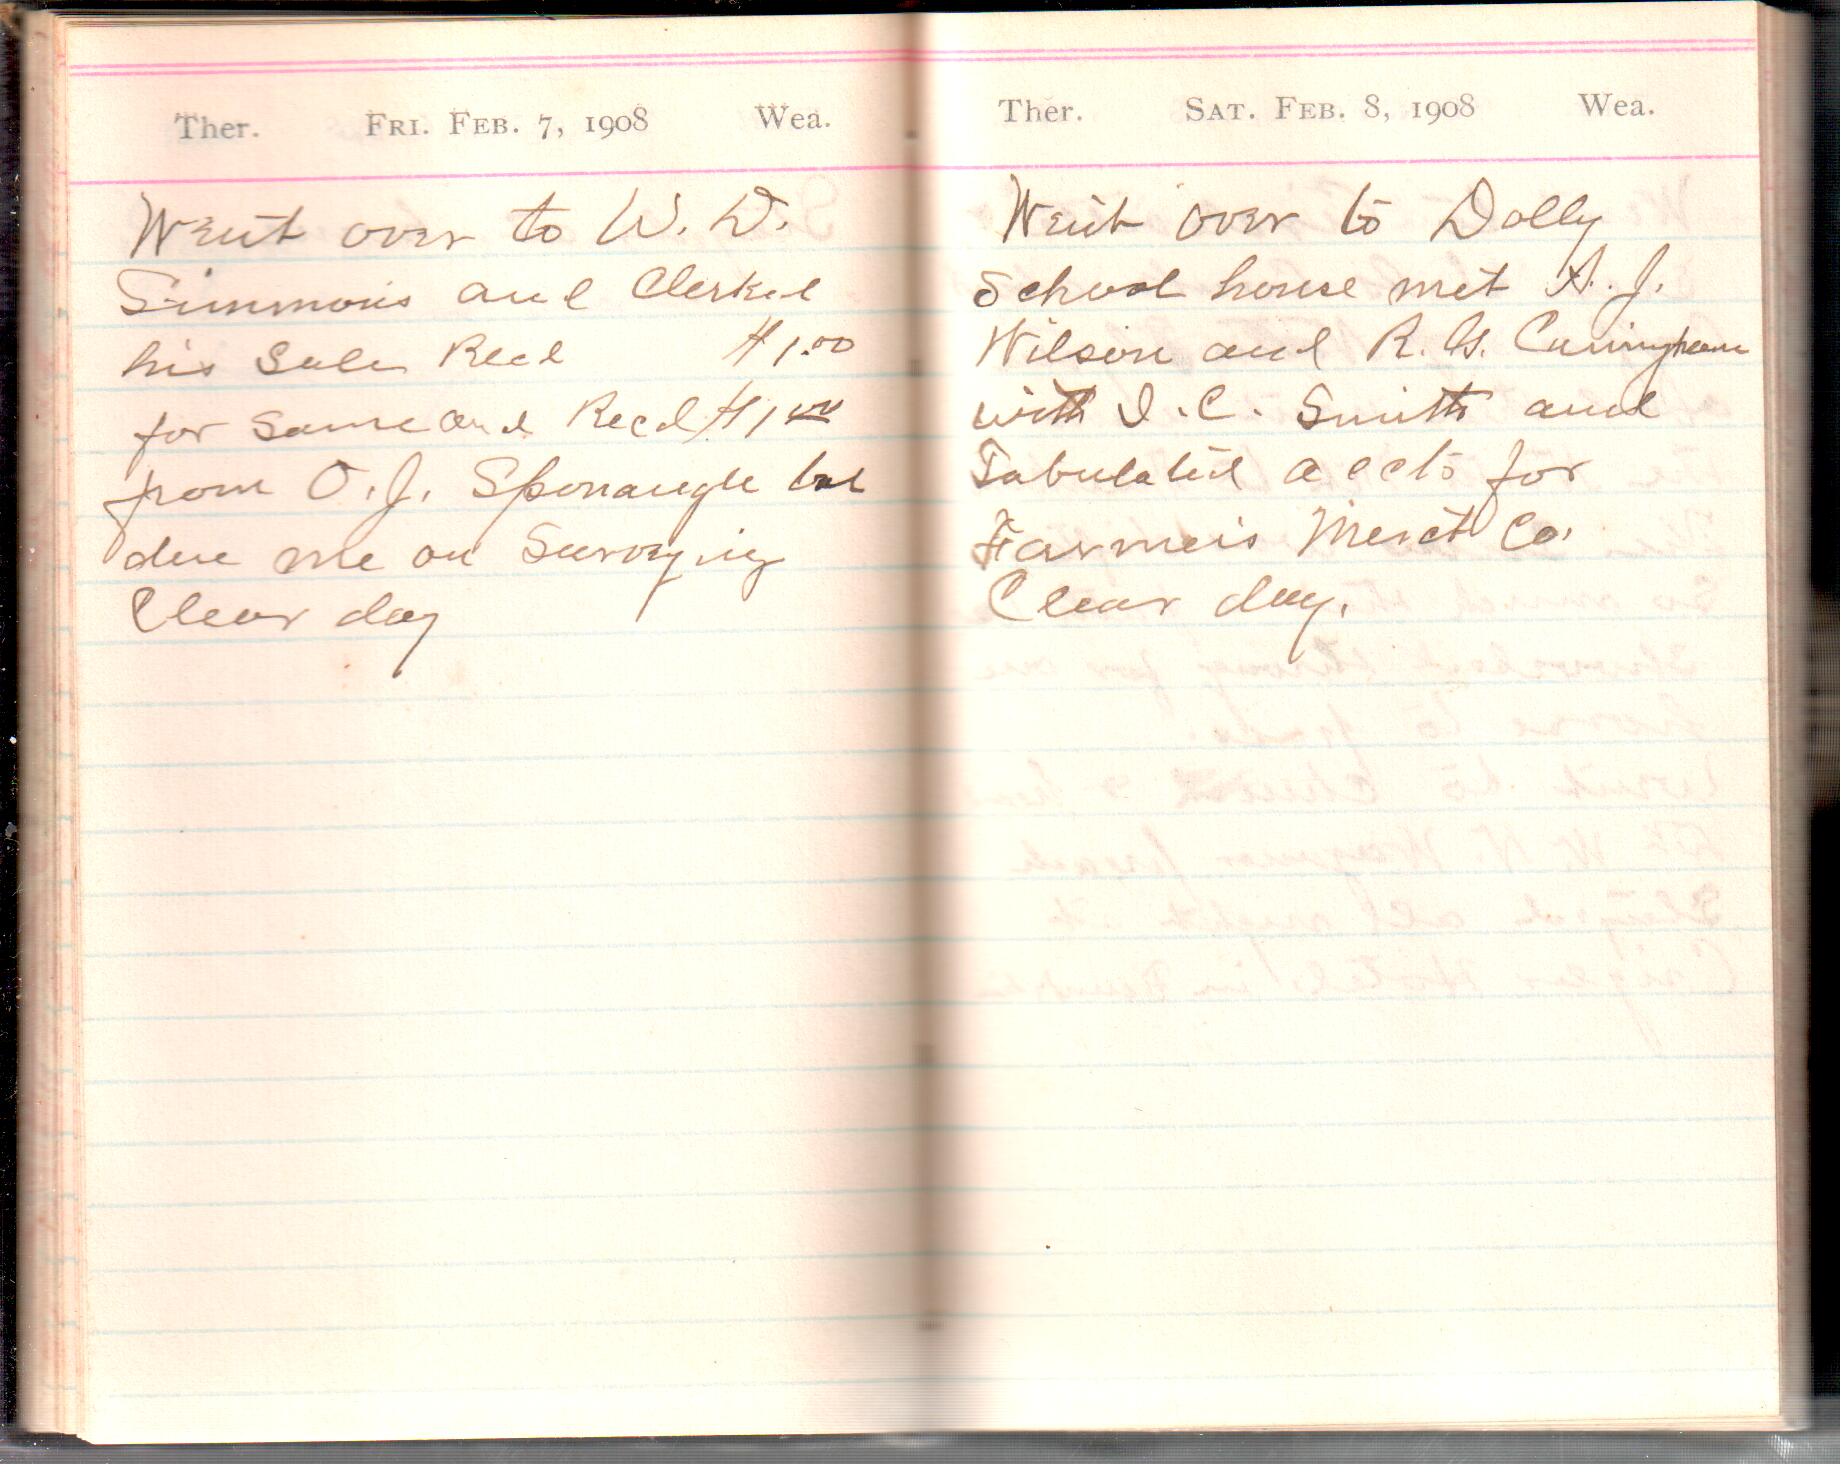 Ther. Fri. Feb. 7, 1908 Wea.
Went over to W. D.
Simmons and Clerked
his Sale Recd $1.00
for same and Recd $1.00
from O. J. Sponaugle bal
due me on Surveying
Clear day
Ther. Sat. Feb. 8, 1908 Wea.
Went over to Dolly
School house met A. J.
Wilson and R. G. Cuningham
with I. C. Smith and
Tabulated accts for
Farmers Merct Co.
Clear day.